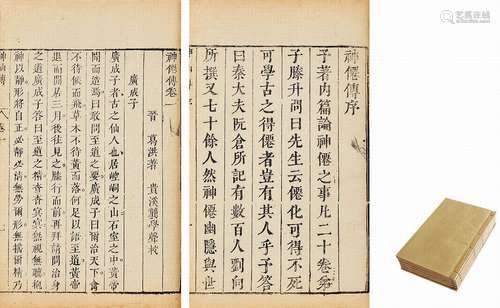 神僊傳序
子著内篇論神僊之事凡二十卷弟
子滕升問曰先生云僊化可得不死
可學古之得僊者豈有其人乎予答
曰秦大夫阮倉所記有數百人劉向
所撰又七十餘人然神僊幽隱與世
神僊傳卷一
晉 葛洪著 貴溪龔學聲校
廣成子
廣成子者古之仙人也居崆峒之山石室之中黄帝
聞而造焉曰敢問至道之要廣成子曰爾治天下禽
不待候而飛草木不待黄而落何足以語至道黄帝
退而閒居三月後往見之膝行而前再拜請問治身
之道廣成子答曰至道之精杳杳冥冥無視無聽抱
神以靜形將自正必靜必清無勞爾形無摇爾精乃
神仙傳 卷一